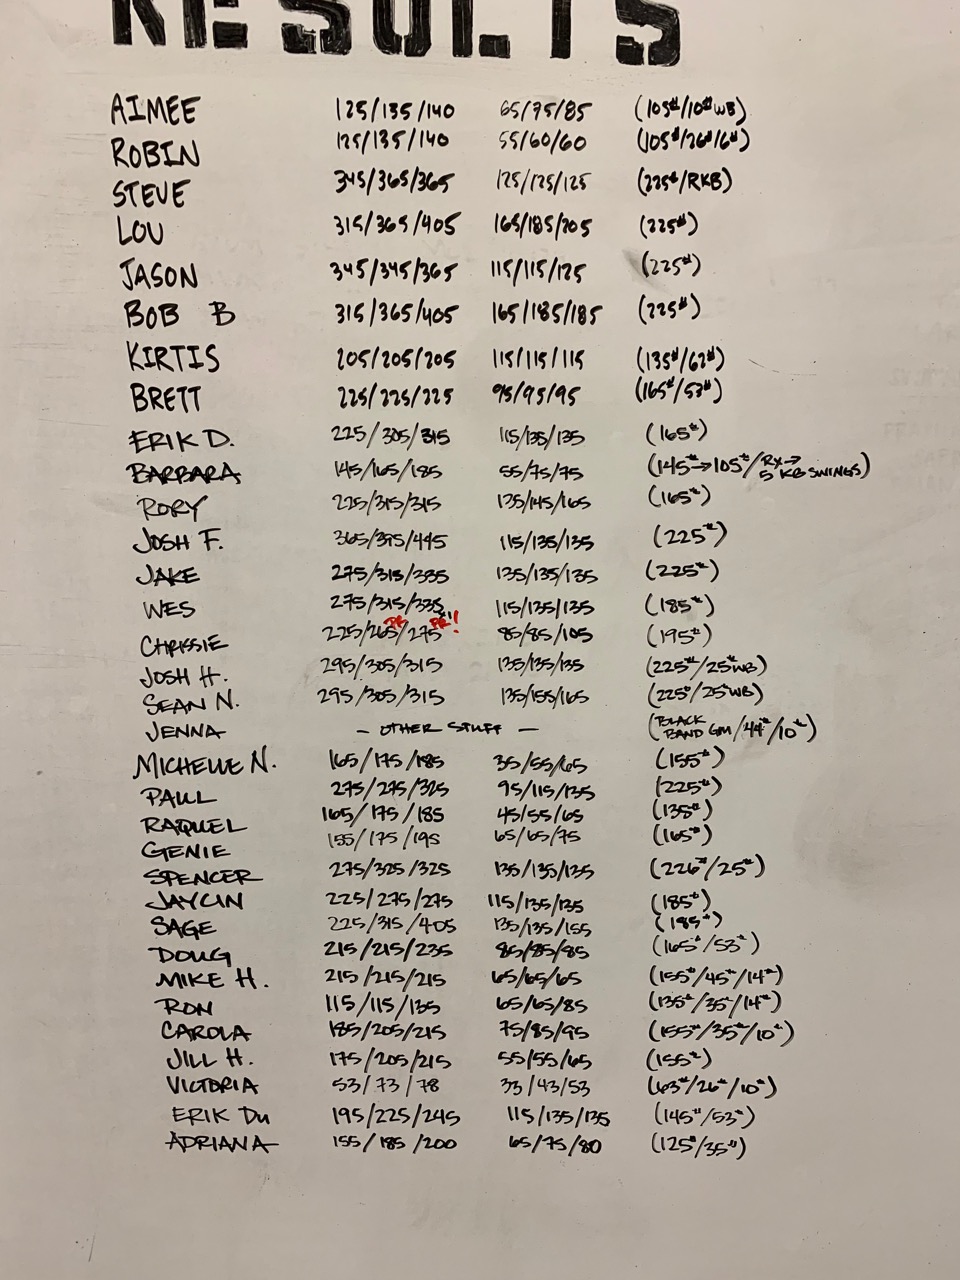 RESULTS
AIMEE 125/135/140 65/75/85 (105#/10#WB)
ROBIN 125/135/140 55/60/60 (105#/26#/6#)
STEVE 345/365/365 125/125/125 (225#/RKB)
LOU 315/365/405 165/185/205 (225#)
JASON 345/345/365 115/115/125 (225#)
BOB B 315/365/405 165/185/185 (225#)
KIRTIS 205/205/205 115/115/115 (135#/62#)
BRETT 225/225/225 95/95/95 (165#/53#)
ERIK D. 225/305/315 115/135/135 (165#)
BARBARA 145/165/185 55/75/75 (145#→105#/RX→5 KB SWINGS)
RORY 225/315/315 135/145/165 (165#)
JOSH F. 365/395/445 115/135/135 (225#)
JAKE 275/315/335 135/135/135 (225#)
WES 275/315/335 x1 115/135/135 (185#)
CHRISSIE 225/265 PR/275 PR! 85/85/105 (195#)
JOSH H. 295/305/315 135/135/135 (225#/25#WB)
SEAN N. 295/305/315 135/155/165 (225#/25#WB)
JENNA - OTHER STUFF - (BLACK BAND GM/44#/10#)
MICHELLE N. 165/175/185 35/55/65 (155#)
PAUL 275/275/325 95/115/135 (225#)
RAQUEL 165/175/185 45/55/65 (135#)
GENIE 155/175/195 65/65/75 (165#)
SPENCER 275/325/325 135/135/135 (226#/25#)
JAYLIN 225/275/275 115/135/135 (185#)
SAGE 225/315/405 135/135/155 (185#)
DOUG 215/215/235 85/85/85 (165#/53#)
MIKE H. 215/215/215 65/65/65 (155#/45#/14#)
RON 115/115/135 65/65/85 (135#/35#/14#)
CAROLA 185/205/215 75/85/95 (155#/35#/10#)
JILL H. 175/205/215 55/55/65 (155#)
VICTORIA 53/73/78 33/43/53 (63#/26#/10#)
ERIK DU 195/225/245 115/135/135 (145#/53#)
ADRIANA 155/185/200 65/75/80 (125#/35#)